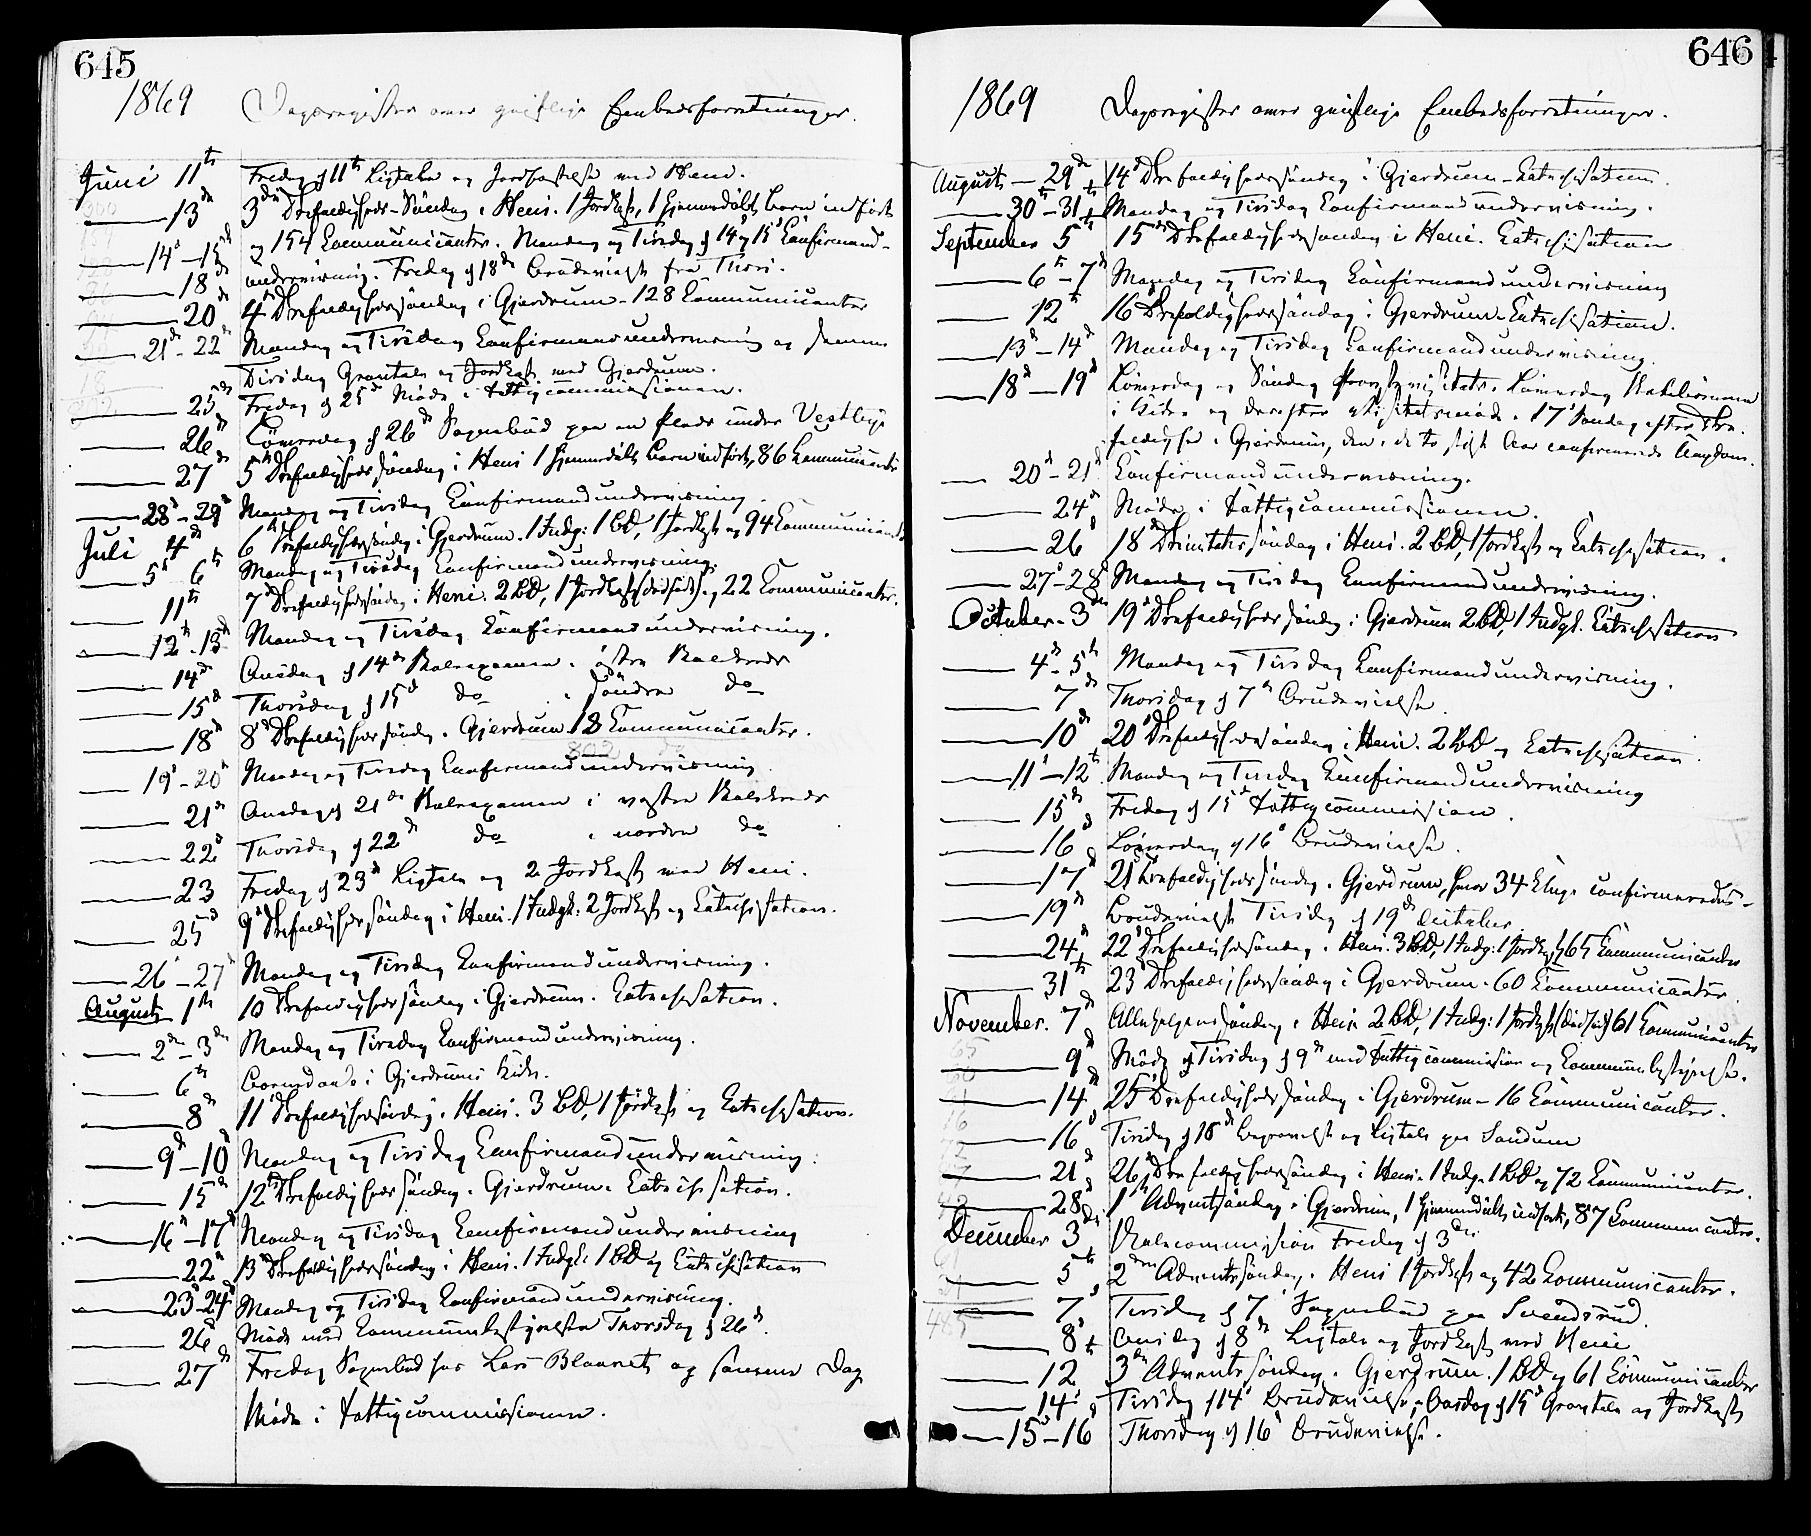 645
1869 Dagsregister over geistlige Embedsforretninger.
Juni 11te Fredag d 11te Ligtale og Jordfæstelse ved Heni.
13de 3die Trefoldigheds-Søndag i Heni. 1 Jordfst, 1 hjemmedøbt Barn indført
14d-15de og 154 Communicanter. Mandag og Tirsdag d 14 og 15d Confirmand-
18de undervisning. Fredag d 18de Brudevielse fra
20de 4d Trefoldighedssøndag i Gjerdrum - 128 Communicanter
21de-22de Mandag og Tirsdag Confirmandundervisning og samme
Tirsdag Gravtale og Jordfæst ved Gjerdrum.
25de Fredag d 25de Møde i Fattigcommissionen.
26de Løverdag d 26de Sognebud paa en Plads under Vestbye
27de 5te Trefoldighedssøndag i Heni 1 hjemmedøbt Barn indført, 86 Communicanter
28d-29d Mandag og Tirsdag Confirmandundervisning.
Juli 4de 6te Trefoldighedssøndag i Gjerdrum. 1 Indg: 1 BD, 1 Jordfst og 94 Communicanter
5te 6te Mandag og Tirsdag Confirmandundervisning.
11te 7d Trefoldighedssøndag i Heni. 2 BD, 1 Jordfst (dødfødt) og 22 Communicanter.
12te-13de Mandag og Tirsdag Confirmandundervisning.
14de Onsdag d 14de Skoleexamen i østre Skolkreds
15d Thorsdag d 15d do i søndre do
18d 8d Trefoldighedssøndag i Gjerdrum 18 Communicanter.
802
19d-20d Mandag og Tirsdag Confirmandundervisning
21de Onsdag d 21de Skoleexamen i vestre Skolkreds
22d Thorsdag d 22de do i nordre do
23 Fredag d 23d Ligtale og 2 Jordfæst ved Heni.
25d 9d Trefoldighedssøndag i Heni. 1 Indgk: 2 Jordfst og Catechisation.
26-27 Mandag og Tirsdag Confirmandundervisning.
August 1te 10 Trefoldighedssøndag i Gjerdrum. Catechisation.
2den-3die Mandag og Tirsdag Confirmandundervisning.
6te Barnedaab i Gjerdrums Kirke.
8de 11d Trefoldighedssøndag i Heni. 3 BD, 1 Jordfst og Catechisation.
9d-10d Mandag og Tirsdag Confirmandundervisning.
15de 12te Trefoldighedssøndag i Gjerdrum. Catechisation.
16d-17d Mandag og Tirsdag Confirmandundervisning
22de 13de Trefoldighedssøndag i Heni. 1 Indgk: 1 BD og Catechisation
23d-24d Mandag og Tirsdag Confirmandundervisning.
26d Møde med Communebestyrelsen Thorsdag d 26d.
27de Fredag Sognebud hos Lars og samme Dag
Møde i Fattigcommissionen.
646
1869 Dagsregister over geistlige Embedsforretninger.
August 29de 14d Trefoldighedssøndag i Gjerdrum - Catechisation.
30te-31te Mandag og Tirsdag Confirmandundervisning.
September 5te 15de Trefoldighedssøndag i Heni. Catechisation
6te-7d Mandag og Tirsdag Confirmandundervisning
12te 16d Trefoldighedssøndag i Gjerdrum. Catechisation.
13d-14d Mandag og Tirsdag Confirmandundervisning.
18d-19d Løverdag og Søndag Provstevisitats. Løverdag Skolebørnene
i Kirken og derefter Visitatsmøde. 17d Søndag efter Tre-
foldighed i Gjerdrum, den i de to sidste Aar confirmerede Ungdom.
20d-21d Confirmandundervisning.
24d Møde i Fattigcommissionen.
26d 18d Trinitatis Søndag i Heni. 2 BD, 1 Jordfst og Catechisation.
27d-28d Mandag og Tirsdag Confirmandundervisning.
October 3die 19d Trefoldighedssøndag i Gjerdrum 2 BD, 1 Indgk. Catechisation
4de-5te Mandag og Tirsdag Confirmandundervisning.
7de Thorsdag d 7de Brudevielse.
10de 20d Trefoldighedssøndag i Heni. 2 BD og Catechisation.
11te-12te Mandag og Tirsdag Confirmandundervisning
15de Fredag d 15d Fattigcommission.
16d Løverdag d 16d Brudevielse.
17d 21 Trefoldighedssøndag i Gjerdrum, hvor 34 Elever confirmeredes-
19d Brudevielse Tirsdag d 19de October
24d 22d Trefoldighedssøndag i Heni. 3 BD, 1 Indg: 1 Jordfst, 65 Communicanter
31te 23d Trefoldighedssøndag i Gjerdrum. 60 Communicanter.
November. 7de Allehelgens Søndag i Heni 2 BD, 1 Indg: 1 Jordfst (dødfødt) 61 Communicanter
9d Møde Tirsdag d 9de med Fattigcommission og Communebestyrelse.
14de 25d Trefoldighedssøndag i Gjerdrum - 16 Communicanter.
16d Tirsdag d 16de Begravelse og Ligtale paa
21d 26de Trefoldighedssøndag i Heni. 1 Indg. 1 BD og 72 Communicanter.
28d 1te Adventsøndag i Gjerdrum, 1 hjemmedøbt indført, 87 Communicanter.
December 3die Skolecommission Fredag d 3die
5te 2den Adventssøndag. Heni 1 Jordfst og 42 Communicanter.
7d Tirsdag d 7d Sognebud paa Svendsrud.
485
8de Onsdag d 8de Ligtale og Jordfæst ved Heni
12te 3die Adventssøndag. Gjerdrum. 1 BD og 61 Communicanter
14d Tirsdag d 14d Brudevielse, Onsdag d 15d Gravtale og Jordfæst
15d-16d Thorsdag d 16d Brudevielse.